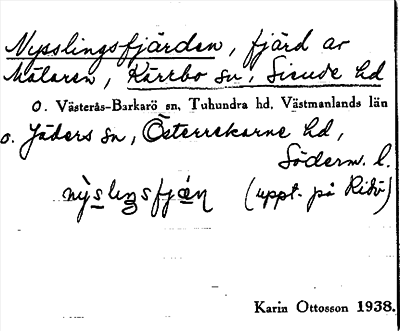 Nysslingsfjärden, fjärd av
Mälaren, Kärrbo sn, Siende hd
o. Västerås-Barkarö sn, Tuhundra hd, Västmanlands län
o. Jäders sn, Österrekarne hd,
Söderm. l.
(uppt. på Ridö)
Karin Ottosson 1938.